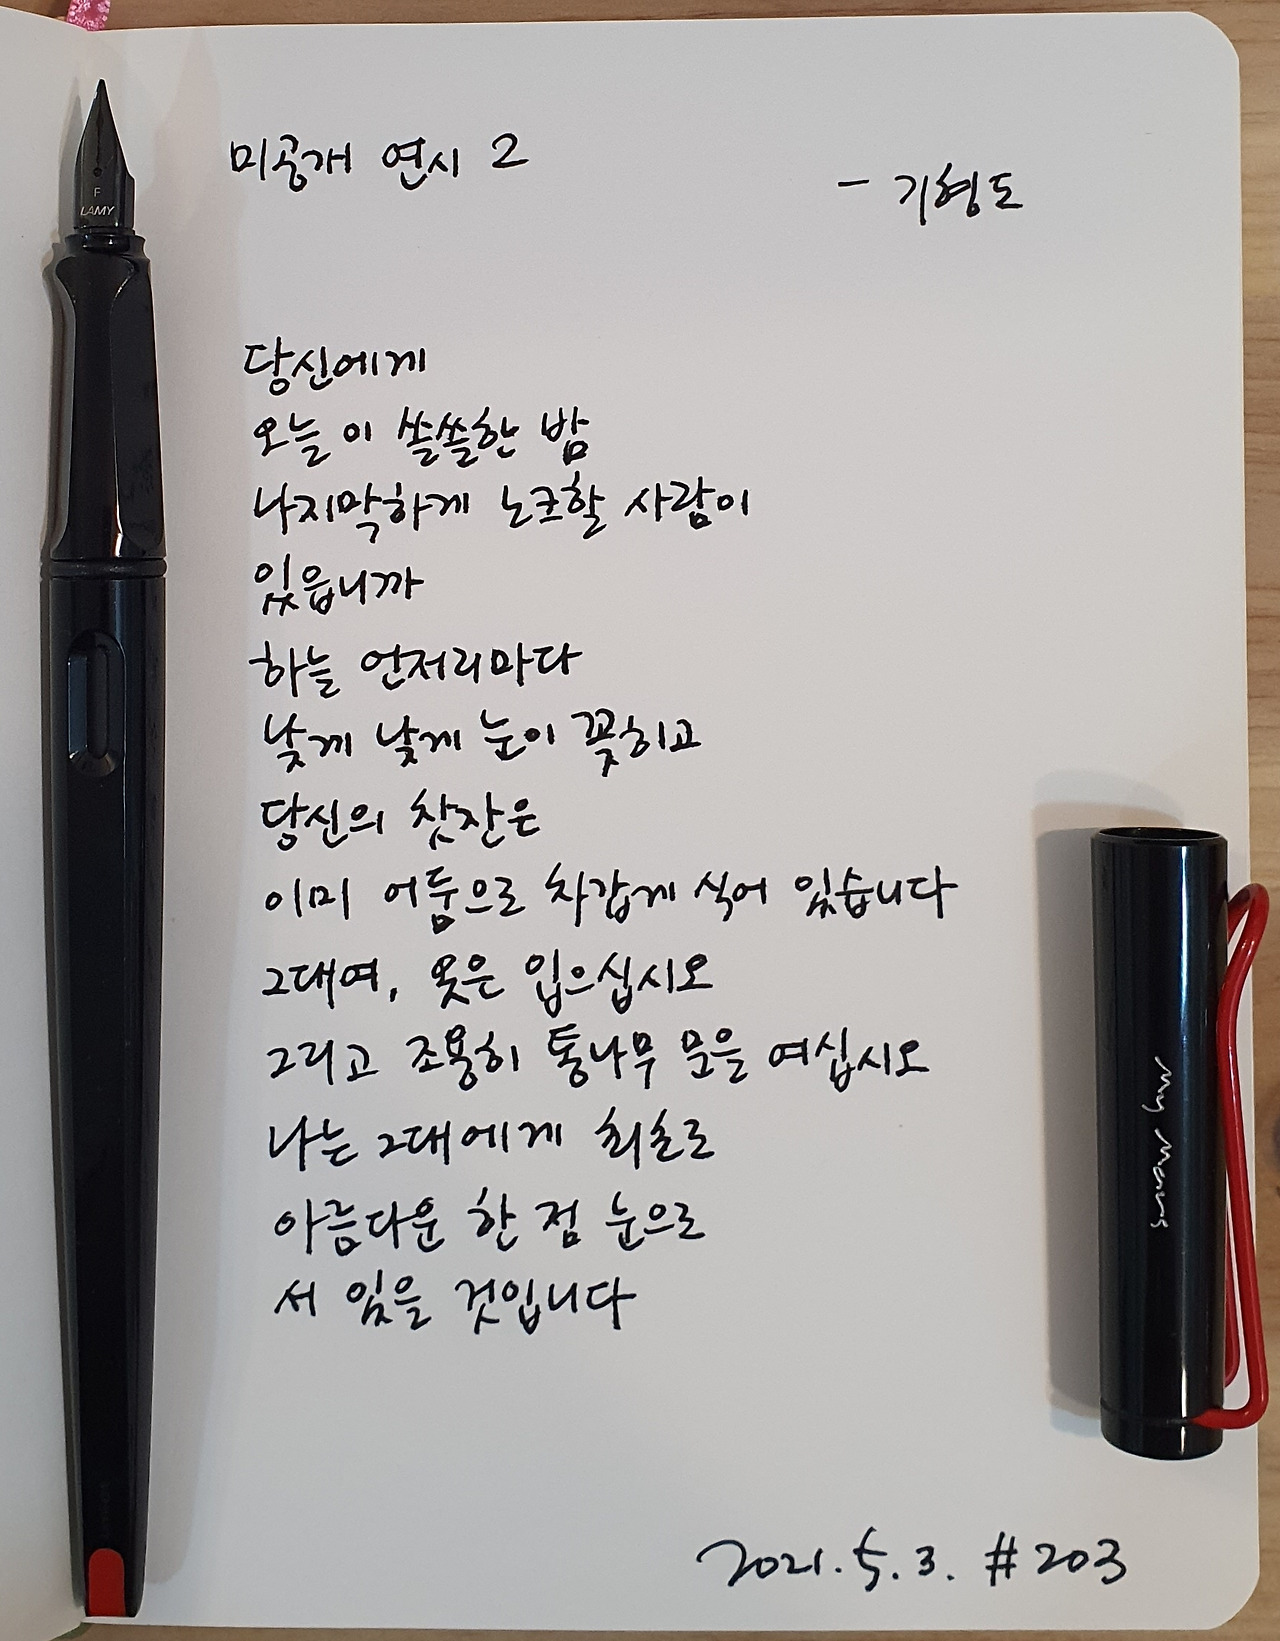 미공개 연시 2
- 기형도
당신에게
오늘 이 쓸쓸한 밤
나지막하게 노크할 사람이
있읍니까
하늘 언저리마다
낮게 낮게 눈이 꽂히고
당신의 찻잔은
이미 어둠으로 차갑게 식어 있습니다
그대여, 옷은 입으십시오
그리고 조용히 통나무 문을 여십시오
나는 그대에게 최초로
아름다운 한 점 눈으로
서 있을 것입니다
2021.5.3. #203
F
LAMY